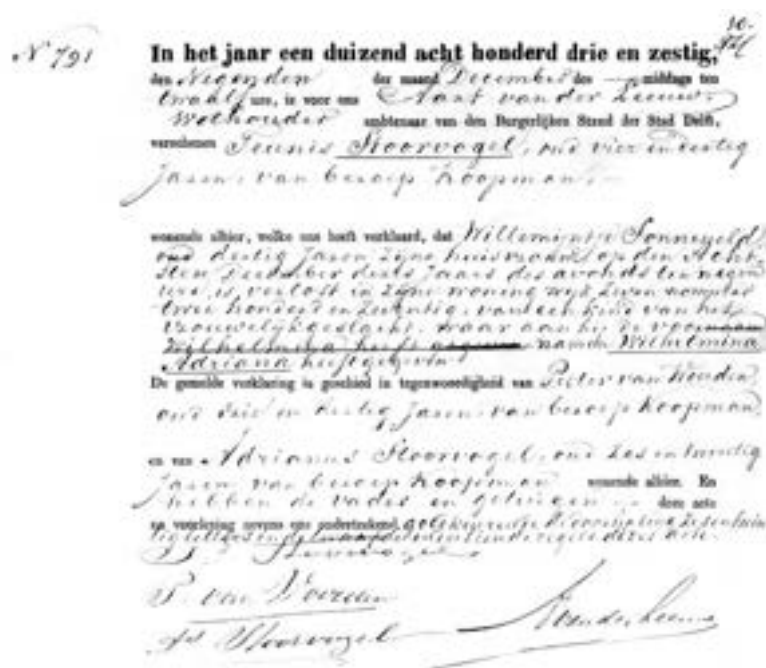 N° 791
In het jaar een duizend acht honderd drie en zestig,
den Negenden der maand December des middags ten
twaalf ure, is voor ons van der Leeuw,
Wethouder ambtenaar van den Burgerlijken Stand der Stad Delft,
verschenen Teunis Stoorvogel, oud vier en dertig
jaren, van beroep Koopman,
wonende alhier, welke ons heeft verklaard, dat Willemijntje Sonneveld
oud dertig jaren zijne huisvrouw op den Acht
sten December dezes jaars des avonds ten negen
ure is verlost in zijne woning wijk zeven nommer
twee honderd en, van een kind van het
vrouwelijk geslacht, waar aan hij de
Wilhelmina heeft namen Wilhelmina
Adriana heeft gegeven
De gemelde verklaring is geschied in tegenwoordigheid van Pieter van
oud drie en dertig jaren, van beroep Koopman
en van Adrianus Stoorvogel, oud zes en twintig
jaren van beroep Koopman wonende alhier. En
hebben de vader en getuigen deze acte
na voorlezing nevens ons onderteekend,
Stoorvogel
P. van
Stoorvogel